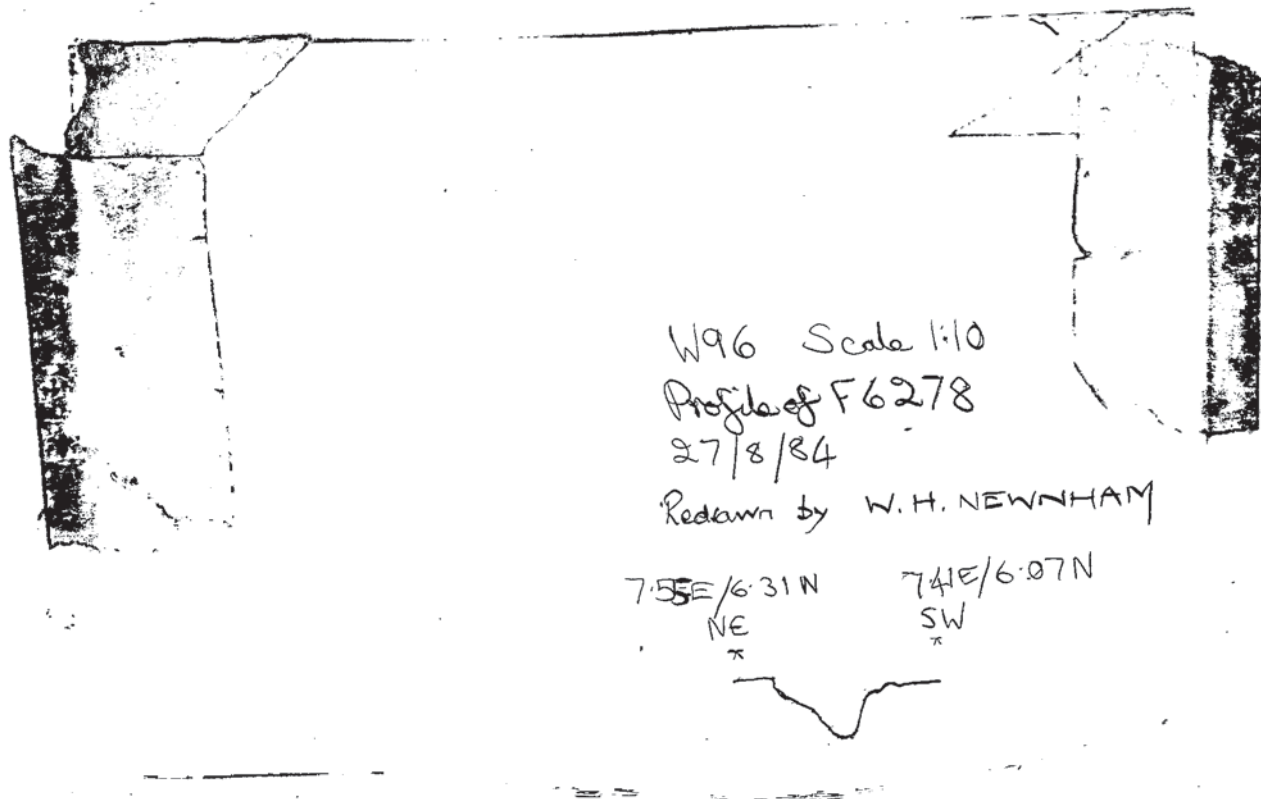 W96 Scale 1:10
Profile of F6278
27/8/84
Redrawn by W.H. NEWNHAM
7.55E/6.31N 7.41E/6.07N
NE SW